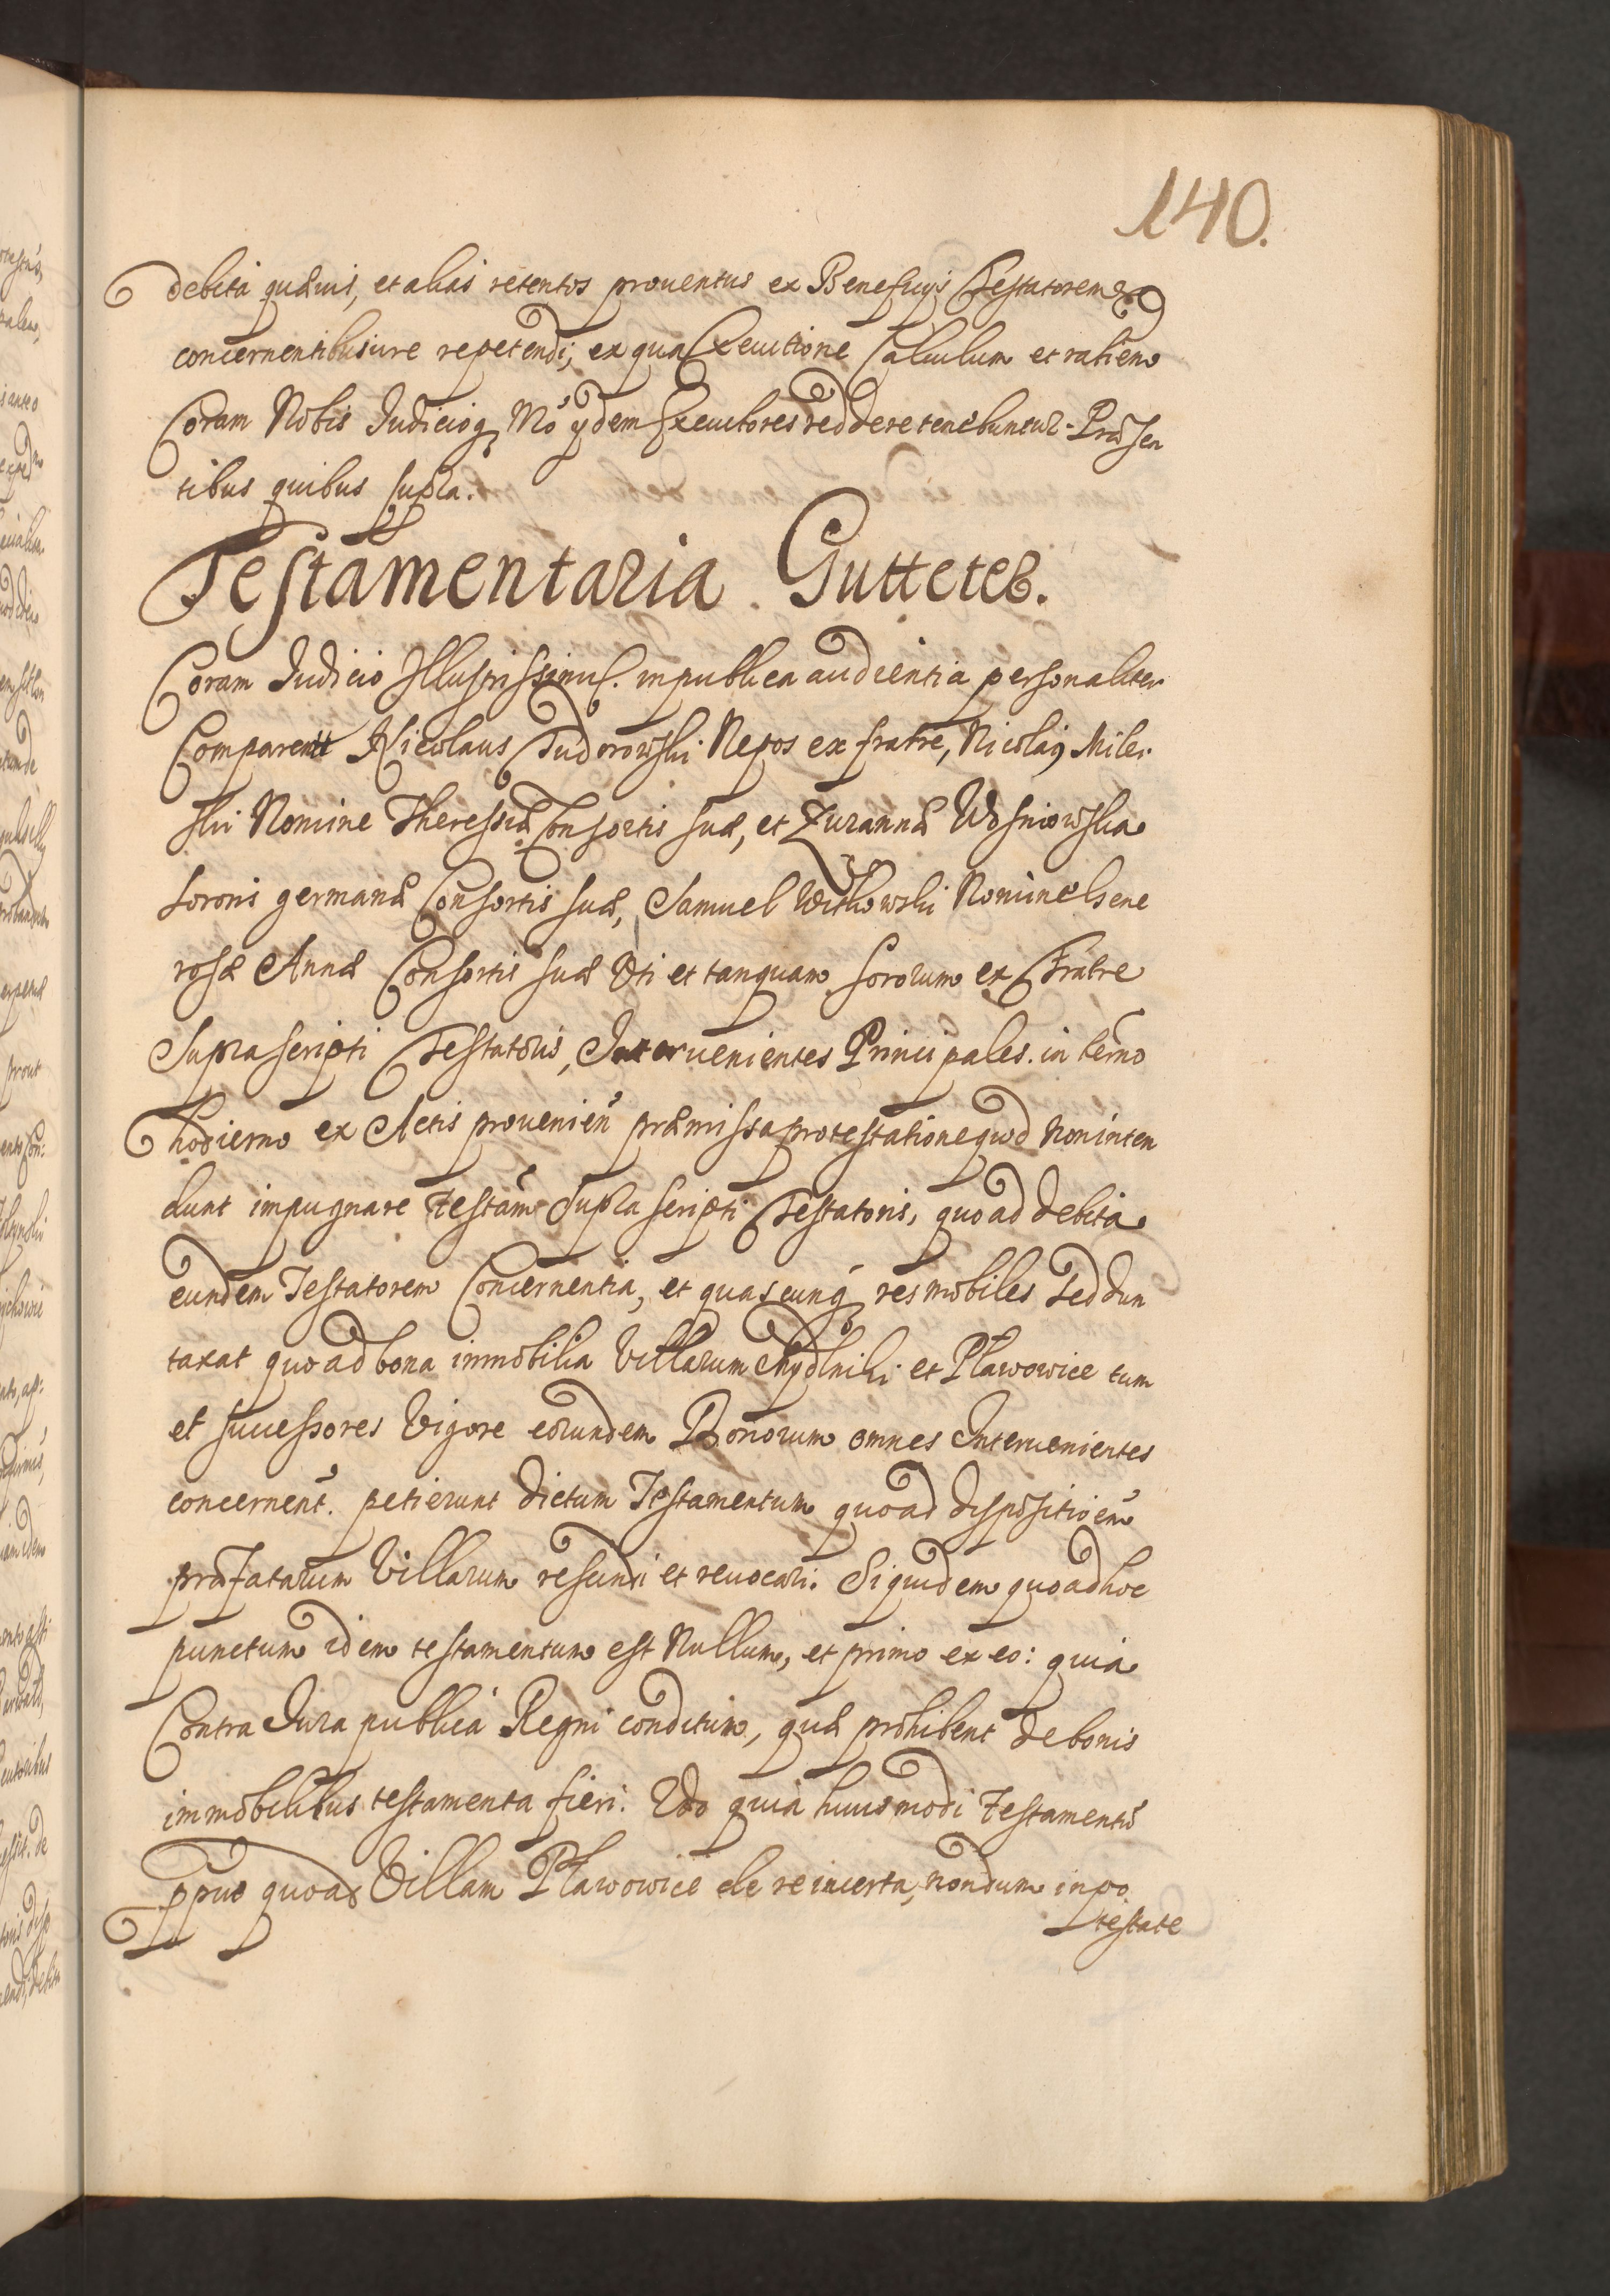 140.
debita quævis, et alias retentos prouentus ex Beneficijs Testatorem
concernentibus iure repetendi; ex qua Executione Calculum et rationem
Coram Nobis Iudicioq₃ Nrō ijdem Executores reddere tenebuntur. Præsen
tibus quibus supra.
Testamentaria Gutteter.
Coram Iudicio Illustrissimi. in publica audientia personaliter
Comparent Nicolaus Tudorowski Nepos ex fratre, Nicolaij Miler
ski Nomine Theressiæ Consortis suæ, et Zuzannæ Wosniowska
sororis germanæ Consortis suæ, Samuel Witkowski Nomine Gene
rosæ Annæ Consortis suæ Uti et tanquam sororum ex Fratre
Suprascripti Testatoris, Intervenientes Principales. in termo
hodierno ex Actis prouenien̄ præmissa protestatione quod non inten
dunt impugnare testām Supra scripti Testatoris, quo ad debita
eundem Testatorem Concernentia, et quascunq₃ res mobiles sed dun
taxat quo ad bona immobilia Villarum Mydlniki et Pławowice tum
et successores Vigore eorundem Bonorum omnes Intervenientes
concernen̄t. petierunt dictum Testamentum quo ad dispositioēm
præfatarum Villarum rescindi et reuocari. Siquidem quo ad hoc
punctum idem testamentum est Nullum, et primo ex eo: quia
Contra Iura publica Regni conditum, quæ prohibent de bonis
immobilibus testamenta fieri. 2do quia huiusmodi Testamentū
quoad Villam Pławowice de re incerta, nondum in po
testate